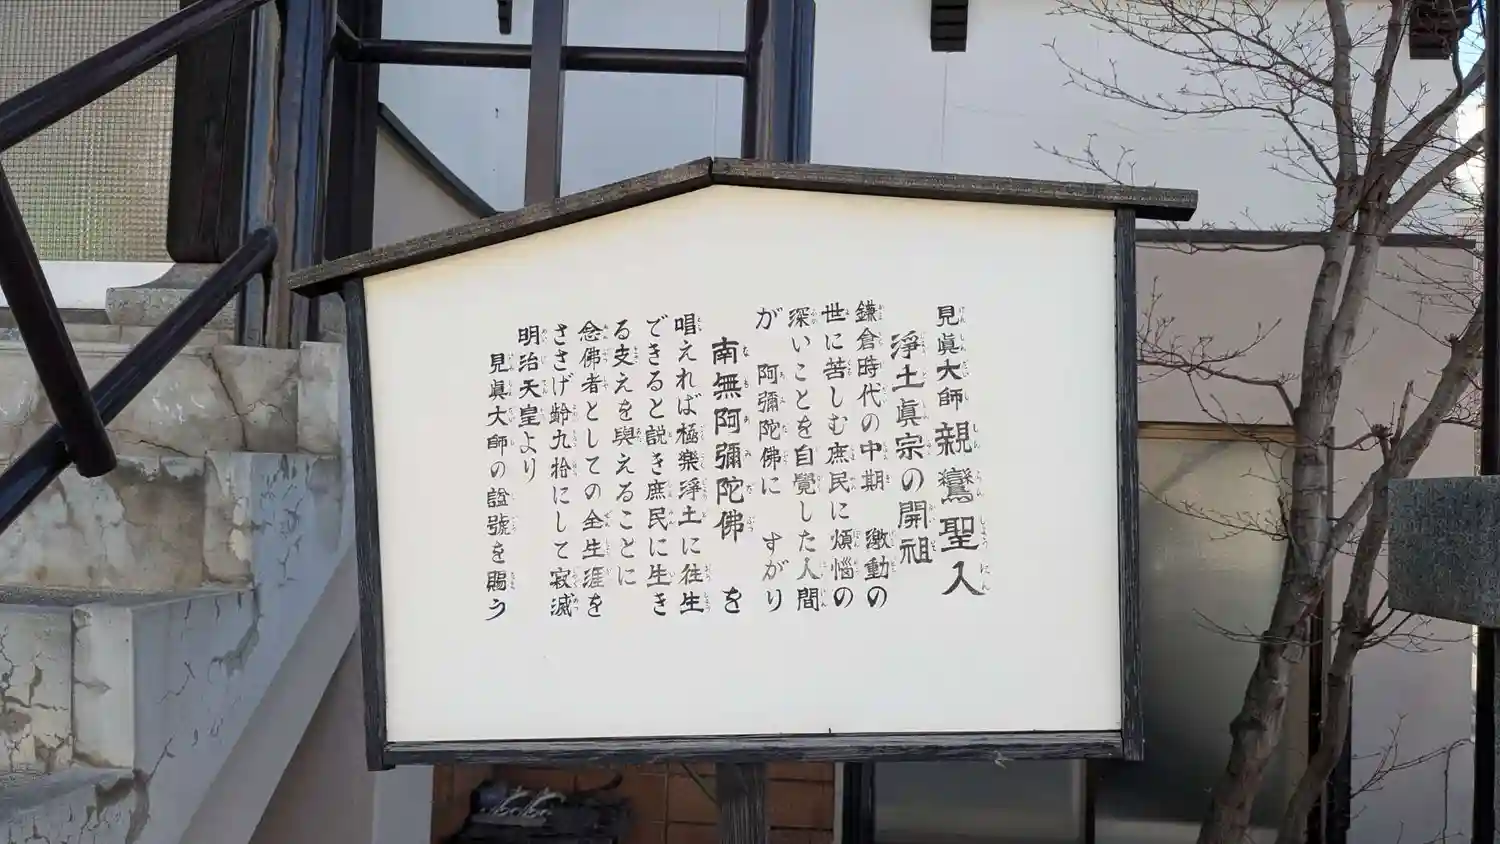 見眞大師 親鸞聖人
淨土眞宗の開祖
鎌倉時代の中期 激動の
世に苦しむ庶民に煩惱の
深いことを自覺した人間
が 阿彌陀佛に すがり
南無阿彌陀佛 を
唱えれば極楽淨土に往生
できると説き庶民に生き
る支えを與えることに
念佛者としての全生涯を
ささげ齢九拾にして寂滅
明治天皇より
見眞大師の諡號を賜う